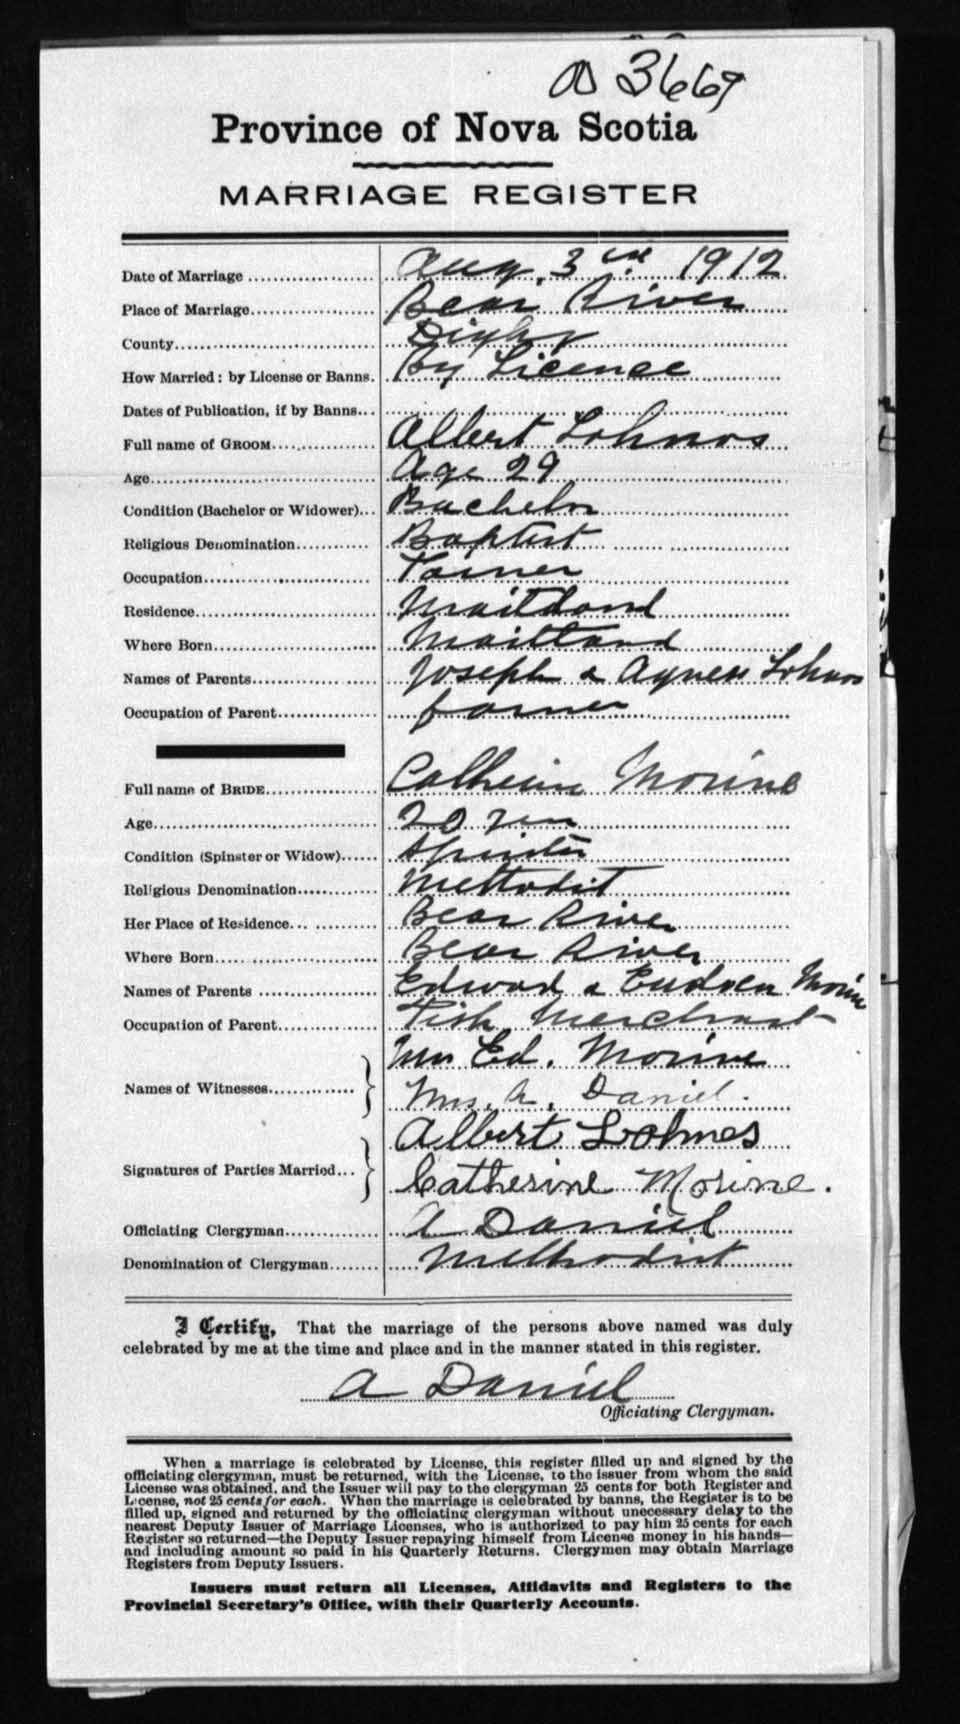 3669
Province of Nova Scotia
MARRIAGE REGISTER
Date of Marriage Aug. 3rd 1912
Place of Marriage Bear River
County Digby
How Married: by License or Banns. By Licence
Dates of Publication, if by Banns
Full name of GROOM Albert Lohnos
Age Age 29
Condition (Bachelor or Widower) Bachelor
Religious Denomination Baptist
Occupation
Residence Maitland
Where Born Maitland
Names of Parents Joseph & Agness Lohnos
Occupation of Parent farmer
Full name of BRIDE Catherine Morine
Age 20 years
Condition (Spinster or Widow) Spinster
Religious Denomination Methodist
Her Place of Residence Bear River
Where Born Bear River
Names of Parents Edward & Morine
Occupation of Parent Fish Merchant
Names of Witnesses Mrs Ed. Morine
Mrs. A. Daniel.
Signatures of Parties Married Albert Lohnes
Catherine Morine.
Officiating Clergyman A Daniel
Denomination of Clergyman Methodist
I Certify, That the marriage of the persons above named was duly
celebrated by me at the time and place and in the manner stated in this register.
A Daniel
Officiating Clergyman.
When a marriage is celebrated by License, this register filled up and signed by the
officiating clergyman, must be returned, with the License, to the issuer from whom the said
License was obtained, and the Issuer will pay to the clergyman 25 cents for both Register and
License, not 25 cents for each. When the marriage is celebrated by banns, the Register is to be
filled up, signed and returned by the officiating clergyman without unecessary delay to the
nearest Deputy Issuer of Marriage Licenses, who is authorized to pay him 25 cents for each
Register so returned—the Deputy Issuer repaying himself from License money in his hands—
and including amount so paid in his Quarterly Returns. Clergymen may obtain Marriage
Registers from Deputy Issuers.
Issuers must return all Licenses, Affidavits and Registers to the
Provincial Secretary's Office, with their Quarterly Accounts.